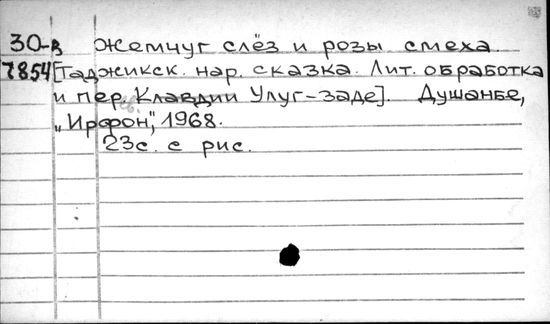 30-в Жемчуг слёз и розы смеха.
7854 [Таджикск. нар. сказка. Лит. обработка
и пер. Клавдии Улуг-заде]. Душанбе,
„Ирфон", 1968.
23с. с рис.